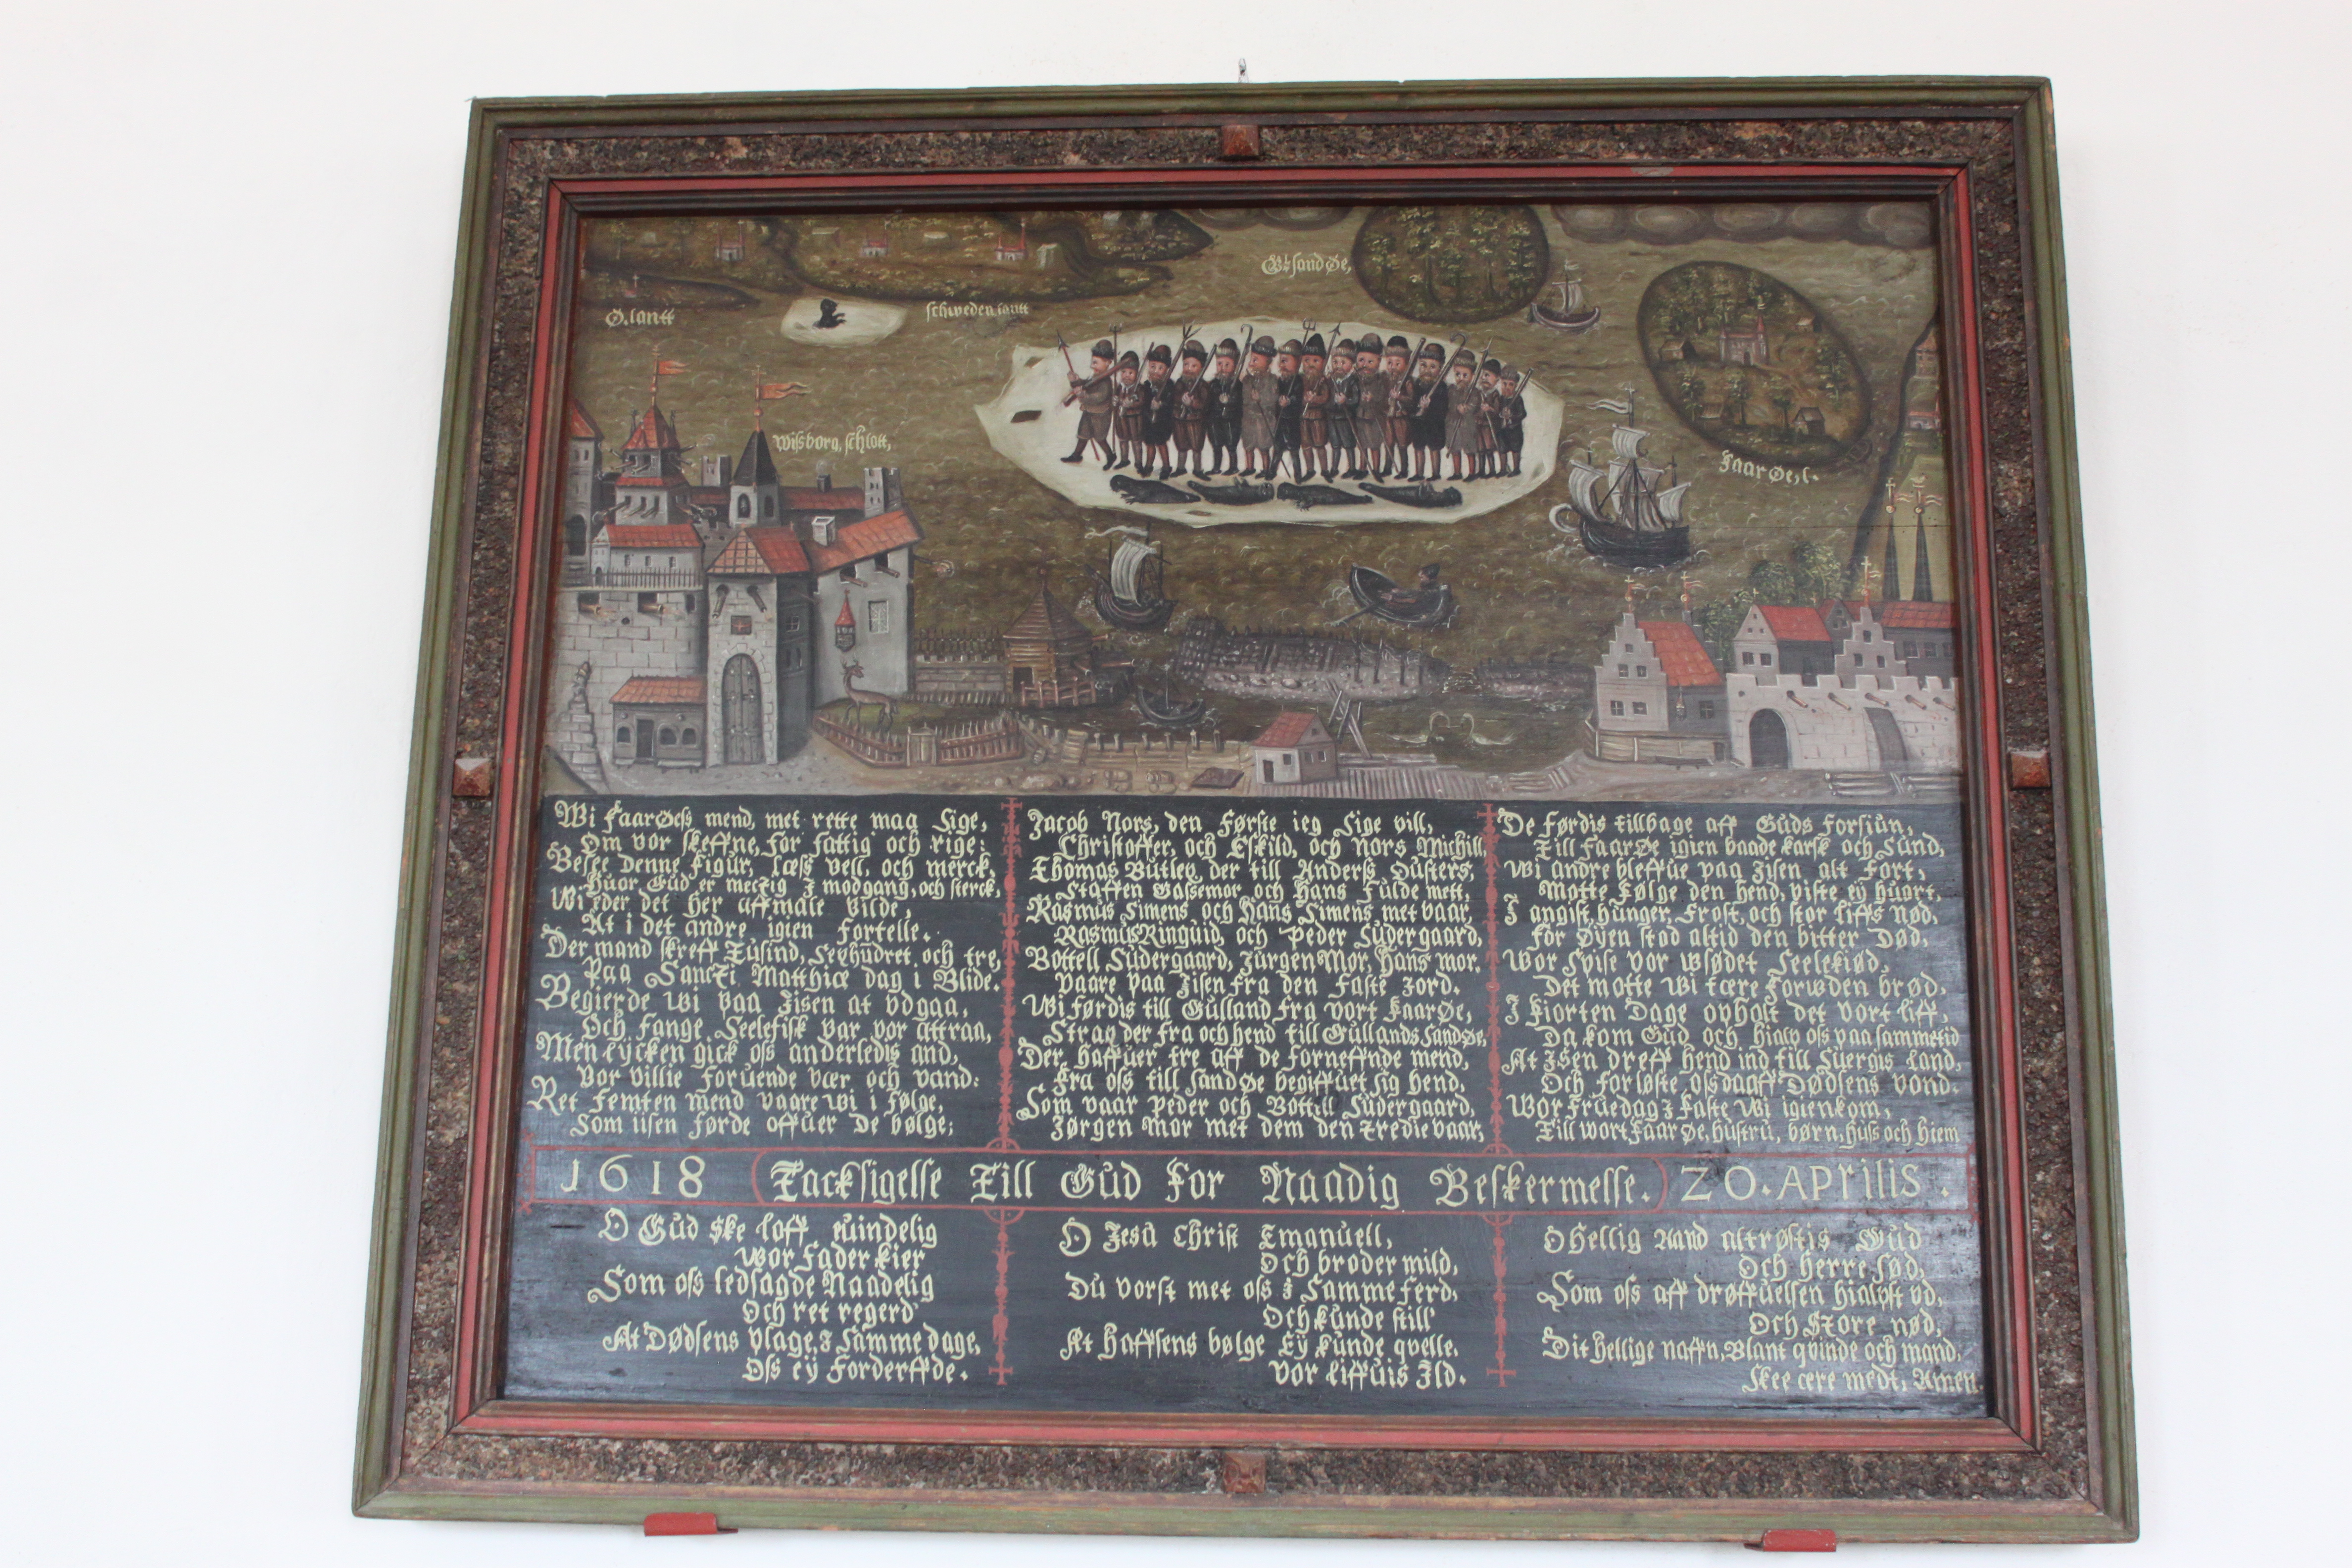 Ø.lantt
schweden lantt
Gl sand Øe,
Wissborg, schlott,
Faar Øe, l.
Wi FaarØess mend, met rette maa Sige,
Om vor skeffne, for fattig och rige:
Besee denne Figur, læss vell, och merck,
Huor Gud er mectig I modgang, och sterck,
Wi eder det her affmale vilde,
At i det andre igien fortelle.
Der mand skreff Tusind, Sexhudret, och tre,
Paa Sancti Matthiæ dag i Blide.
Begierde wi paa Iisen at vdgaa,
Och Fange Seelefisk var vor attraa,
Men lÿcken gick oss anderledis and,
Vor villie foruende vær och vand:
Ret Femten mend vaare wi i Følge,
Som iisen førde offuer De bølge;
Jacob Nors, den Første ieg Sige vill,
Christoffer, och Eskild, och Nors Michill,
Thomas Butleg, der till Anderss Dusters,
Staffen Gassemor och Hans Fulde mett,
Rasmus Simens och Hans Simens met vaar,
Rasmus Ringuid och Peder Sudergaard,
Bottell Sudergaard, Jürgen Mor, Hans mor.
Vaare paa Iisen fra den Faste Jord.
Wi førdis till Gulland fra vort FaarØe,
Strax der fra och hend till Gullands SandØe,
Der haffuer tre aff de forneffnde mend,
Fra oss till Sand Øe begiffuet sig hend,
Som vaar Peder och Bottill Sudergaard,
Jørgen Mor met dem den tredie vaar,
De førdis tillbage aff Guds Forsiun,
Till FaarØe igien baade karsk och Sund,
Wi andre bleffue paa Iisen alt fort,
Motte Følge den hend, viste eÿ huort,
I angist, hunger, Frost, och stor liffs nød,
For Øÿen stod altid den bitter Død,
Wor Spise vor wsødet Seelekiød,
Det motte wi tære Forwden brød,
I Fiorten Dage opholt det vort liff,
Da kom Gud och hialp oss paa sammetid
At Isen dreff hend ind till Suergis Land,
Och forløste oss aff Dødsens vond.
Wor Fruedag I Faste Wi igienkom,
Till wort Faar Øe, hustru, børn, huss och hiem
1618 Tacksigelse Till Gud For Naadig Beskermelse. 20. Aprilis.
O Gud ske loff euindelig
Wor Fader kier
Som oss ledsagde Naadelig
Och ret regerd
At Dødsens Plage, I Samme dage,
Oss eÿ Forderffde.
O Jesu Christ Emanuell,
Och broder mild,
Du vorst met oss I Samme Ferd,
Och kunde still
At Haffsens bølge Eÿ kunde qvelle.
Vor Liffuis Ild.
O hellig Aand altrøstis Gud
Och herre Sød,
Som oss aff drøffuelsen hialpst vd,
Och Store nød,
Dit hellige naffn, Blant qvinde och mand,
Skee ære medt, Amen.